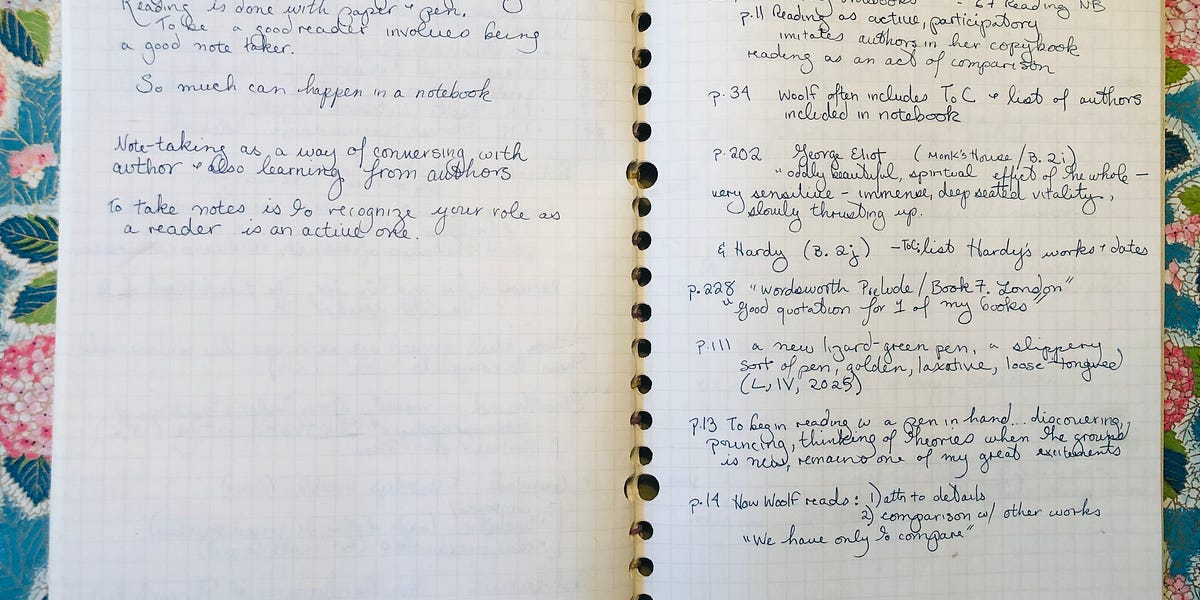 Reading is done with paper & pen.
To be a good reader involves being
a good note taker.
So much can happen in a notebook
Note-taking as a way of conversing with
author & also learning from authors
To take notes is to recognize your role as
a reader is an active one.
67 Reading NB
p.11 Reading as active, participatory
imitates authors in her copybook
reading as an act of comparison
p.34 Woolf often includes ToC & list of authors
included in notebook
p.202 George Eliot (Monk's House/B. 2i)
"oddly beautiful, spiritual effect of the whole –
very sensitive – immense, deep seated vitality,
slowly thrusting up.
& Hardy (B. 2j) – ToC: list Hardy's works & dates
p.228 "Wordsworth Prelude/Book 7. London"
"good quotation for 1 of my books"
p.111 a new lizard-green pen, a slippery
sort of pen, golden, laxative, loose tongued
(L, IV, 2025)
p.13 To begin reading w a pen in hand... discovering,
pouncing, thinking of theories when the ground
is new, remains one of my great excitements
p.14 How Woolf reads: 1) attn to details
2) comparison w/ other works
"We have only to compare"